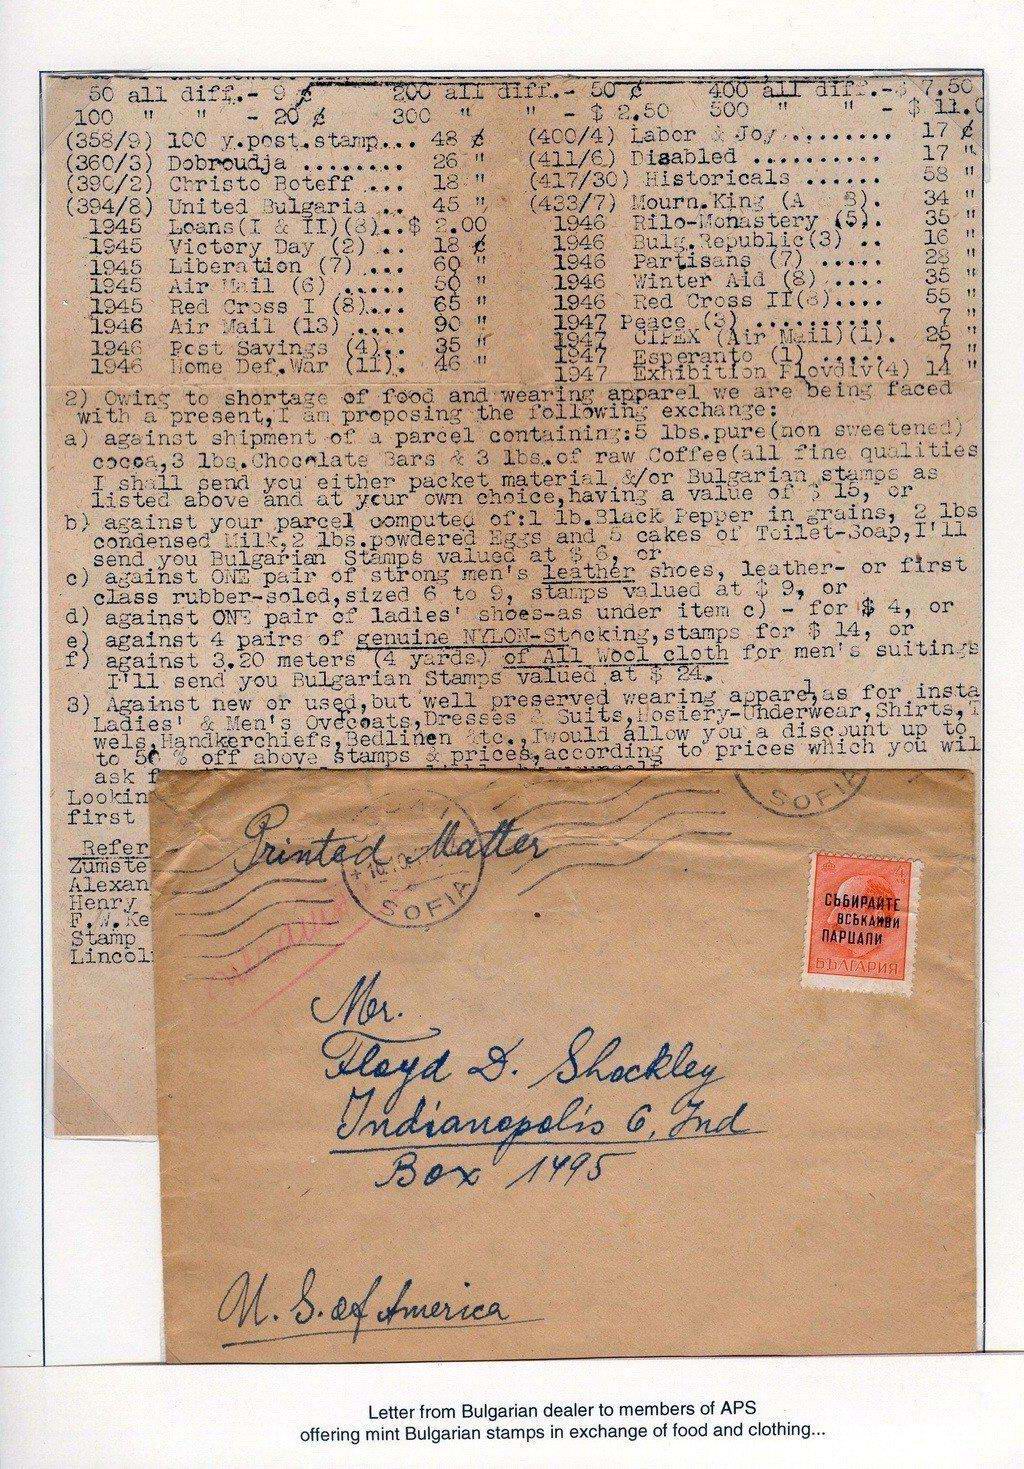 50 all diff.- 9 ¢ 200 all diff.- 50 ¢ 400 all diff.-$ 7.50
100 " " - 20 ¢ 300 " " - $ 2.50 500 " " - $ 11.0
(358/9) 100 y.post.stamp... 48 ¢ (400/4) Labor & Joy........ 17 ¢
(360/3) Dobroudja ........ 26 " (411/6) Disabled .......... 17 "
(390/2) Christo Boteff ... 18 " (417/30) Historicals ...... 58 "
(394/8) United Bulgaria .. 45 " (433/7) Mourn.King (A & B). 34 "
1945 Loans(I & II)(8)..$ 2.00 1946 Rilo-Monastery (5). 35 "
1945 Victory Day (2) .. 18 ¢ 1946 Bulg.Republic(3) .. 16 "
1945 Liberation (7) ... 60 " 1946 Partisans (7) ..... 28 "
1945 Air Mail (6) ..... 50 " 1946 Winter Aid (8).... 35 "
1945 Red Cross I (8)... 65 " 1946 Red Cross II(8).... 55 "
1946 Air Mail (13) .... 90 " 1947 Peace (3) ......... 7 "
1946 Post Savings (4).. 35 " 1947 CIPEX (Air Mail)(1). 25 "
1946 Home Def.War (11). 46 " 1947 Esperanto (1) ..... 7 "
1947 Exhibition Plovdiv(4) 14 "
2) Owing to shortage of food and wearing apparel we are being faced
with a present,I am proposing the following exchange:
a) against shipment of a parcel containing:5 lbs.pure(non sweetened)
cocoa,3 lbs.Chocolate Bars & 3 lbs.of raw Coffee(all fine qualities
I shall send you either packet material &/or Bulgarian stamps as
listed above and at your own choice,having a value of $ 15, or
b) against your parcel computed of:1 lb.Black Pepper in grains, 2 lbs
condensed Milk,2 lbs.powdered Eggs and 5 cakes of Toilet-Soap,I'll
send you Bulgarian Stamps valued at $ 6, or
c) against ONE pair of strong men's leather shoes, leather- or first
class rubber-soled,sized 6 to 9, stamps valued at $ 9, or
d) against ONE pair of ladies' shoes-as under item c) - for $ 4, or
e) against 4 pairs of genuine NYLON-Stocking,stamps for $ 14, or
f) against 3.20 meters (4 yards) of All Wool cloth for men's suitings
I'll send you Bulgarian Stamps valued at $ 24.
3) Against new or used,but well preserved wearing apparel,as for insta
Ladies' & Men's Overcoats,Dresses & Suits,Hosiery-Underwear,Shirts,T
wels,Handkerchiefs,Bedlinen &tc.,Iwould allow you a discount up to
to 50 % off above stamps & prices,according to prices which you wil
ask f
Lookin
first
Refer
Zumste
Alexan
Henry
F.W.Ke
Stamp
Lincol
SOFIA
Printed Matter
SOFIA
СЪБИРАЙТЕ
ВСѢКАКВИ
ПАРЦАЛИ
БЪЛГАРИЯ
Mr.
Floyd D. Shockley
Indianopolis 6, Ind
Box 1495
U. S. of America
Letter from Bulgarian dealer to members of APS
offering mint Bulgarian stamps in exchange of food and clothing...